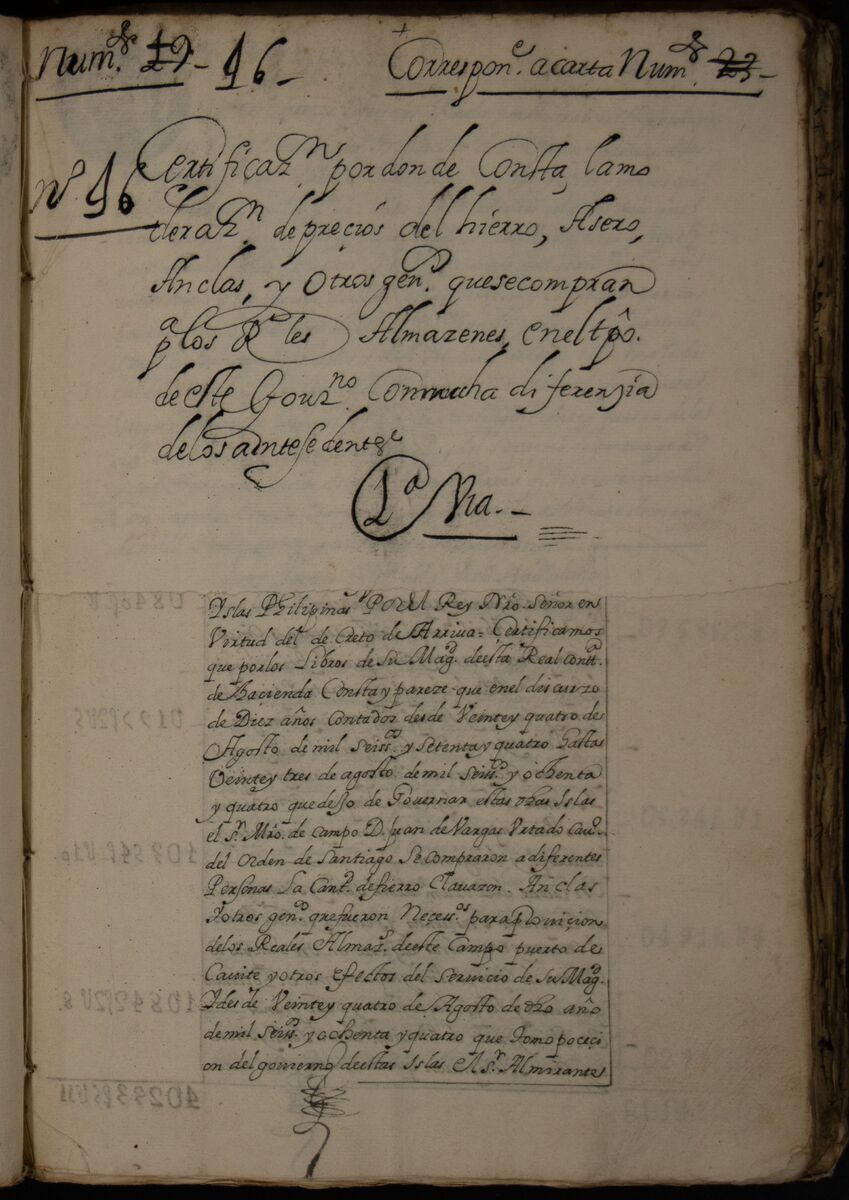 Num.º 19. 16. Correspon.e a carta Num.º 23.
nº 16
Certificaz.n por donde Consta, la mo
deraz.n de precios del hierro, Asero,
Anclas, y Otros gen.s que se compran
p.a los R.s les Almazenes, en el tpo.
de este Gouz.no Con mucha diferenzia
de los antesedent.es
1.a Via.
Yslas Philipinas por el Rey Nro Señor en
Virtud del de Creto de Arriua. Certificamos
que por los Libros de Su Mag.d de esta Real Cont.a
de Haçienda Consta y pareze que en el discurzo
de Diez años Contados des de Veinte y quatro de
Agosto de mil Seiss.os y Setenta y quatro hasta
Veinte y tres de agosto de mil Seiss.os y ochenta
y quatro que dejo de Governar estas dhas Islas
el S.r Mro. de Campo D. Juan de Vargas Vrtado Cau.o
del Orden de Santiago Se compraron a diferentes
Personas La Cant.d de fierro Clauazon. Anclas
Y otros gen.os que fueron Necess.os para prouicion
de los Reales Almaz.s de este Campo puerto de
Cauite y otros efectos del Seruicio de Su Mag.d
Y des de Veinte y quatro de Agosto de dho año
de mil Seiss.os y ochenta y quatro que Tomo poceçi
on del gouierno de estas Islas el S.r Almirante